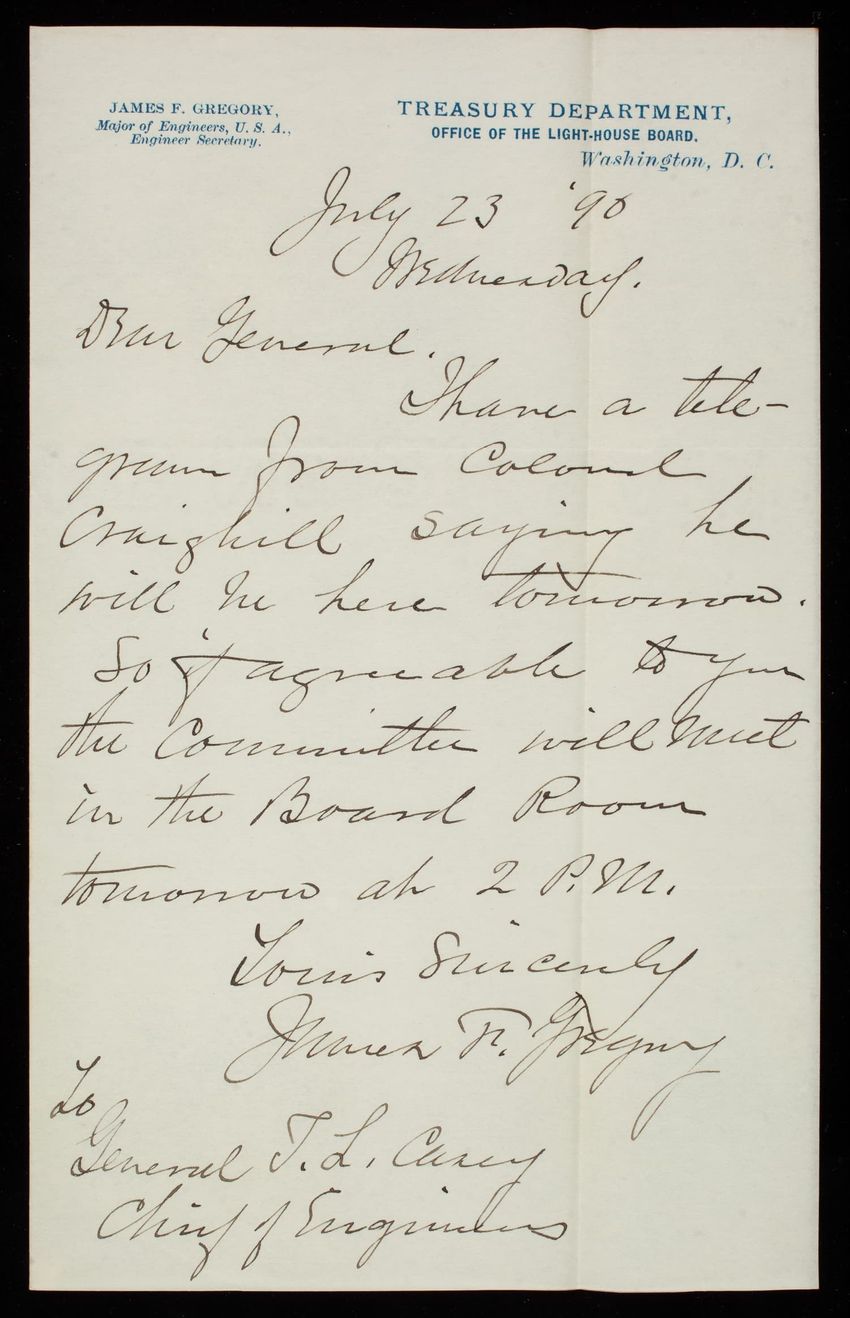 JAMES F. GREGORY,
Major of Engineers, U. S. A.,
Engineer Secretary.
TREASURY DEPARTMENT,
OFFICE OF THE LIGHT-HOUSE BOARD.
Washington, D. C.
July 23 '90
Wednesday.
Dear General.
I have a tele-
gram from Colonel
Craighill saying he
will be here tomorrow.
So if agreeable to you
the Committee will meet
in the Board Room
tomorrow at 2 P.M.
Yours Sincerely
James F. Gregory
To
General T. L. Casey
Chief of Engineers